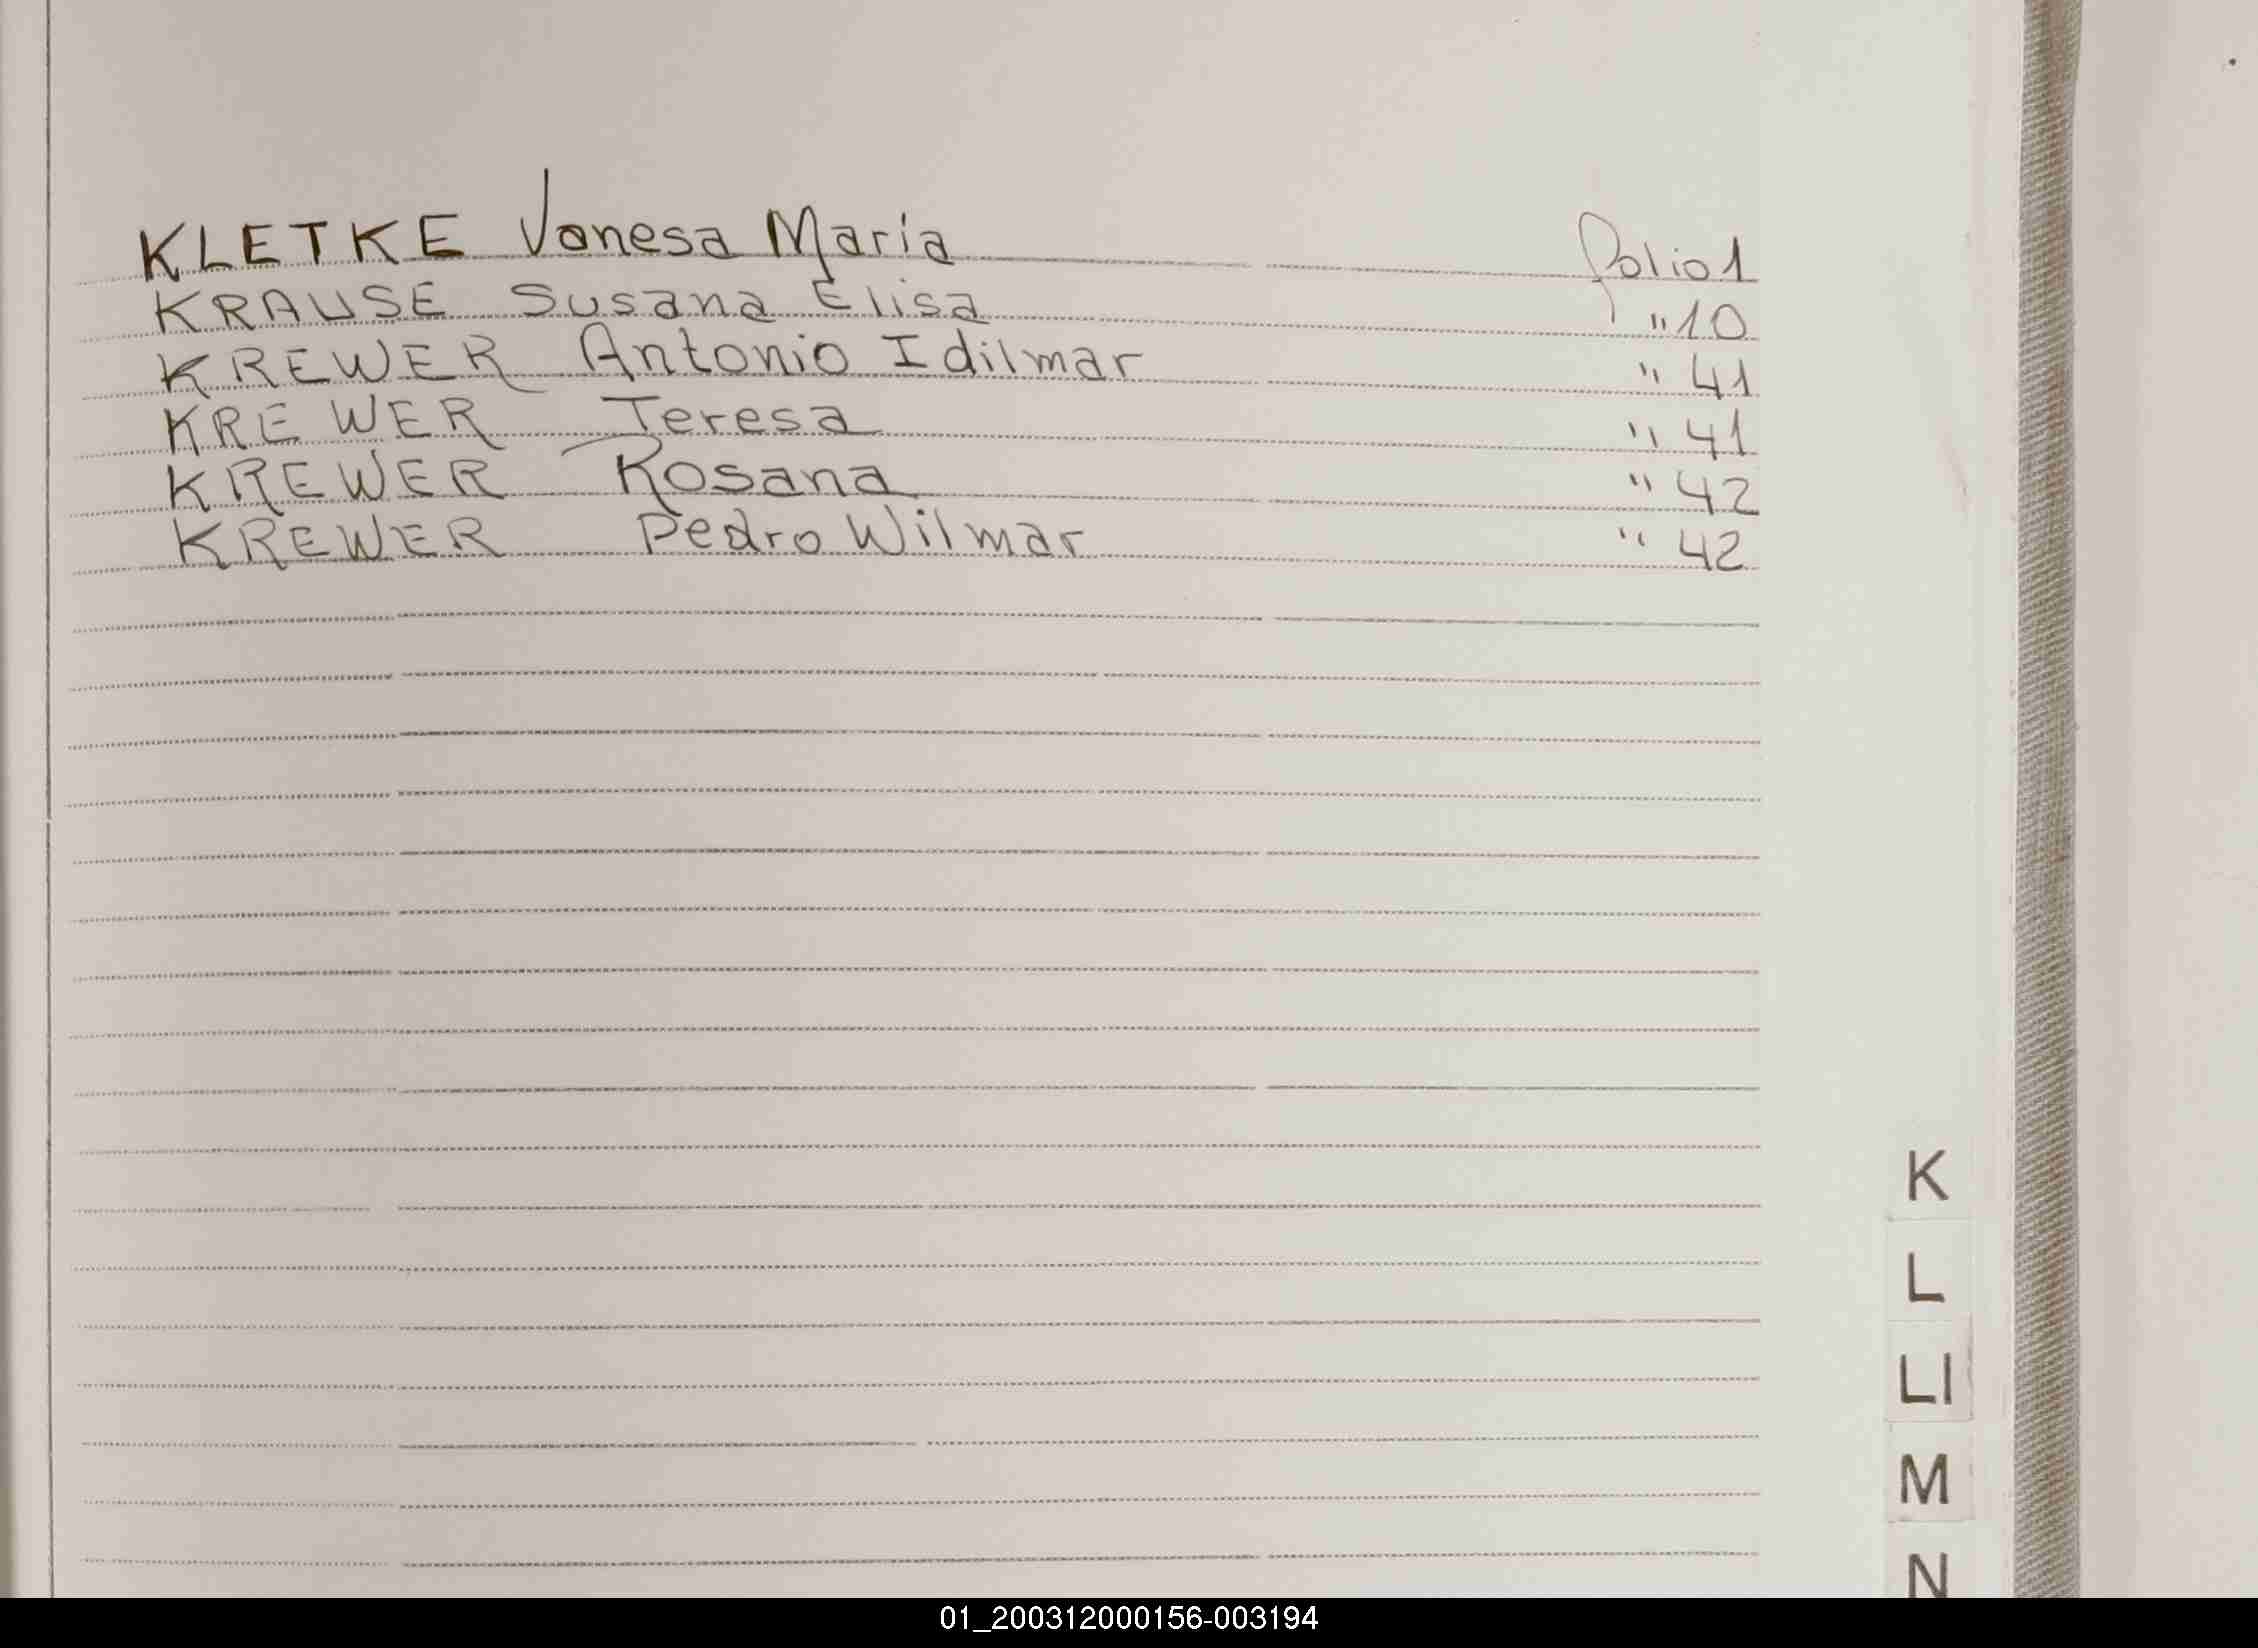 KLETKE Vanesa Maria folio 1
KRAUSE Susana Elisa " 10
KREWER Antonio Idilmar " 41
KREWER Teresa " 41
KREWER Rosana " 42
KREWER Pedro Wilmar " 42
K
L
Ll
M
N
01_200312000156-003194